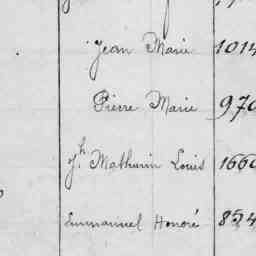 Jean Marie 1014
Pierre Marie 970
Jh Mathurin Louis 1660
Emmanuel Honoré 854